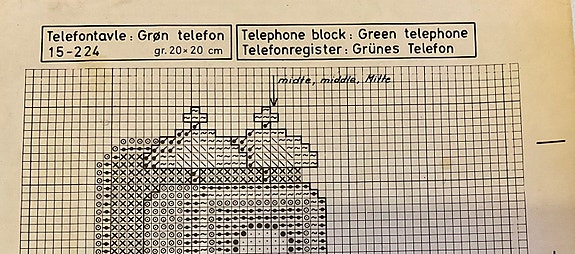 Telefontavle: Grøn telefon
15-224 gr. 20×20 cm
Telephone block: Green telephone
Telefonregister: Grünes Telefon
midte, middle, Mitte